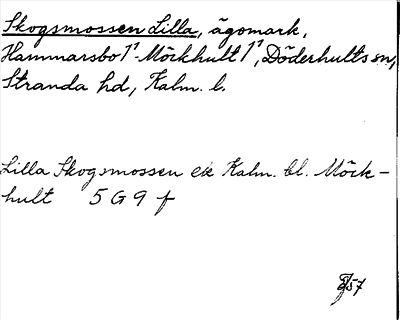 Skogsmossen Lilla, ägomark,
Hammarsbo 1¹-Möckhult 1¹, Döderhults sn,
Stranda hd, Kalm. l.
Lilla Skogsmossen ek Kalm. bl. Möck-
hult 5 G 9 f
57